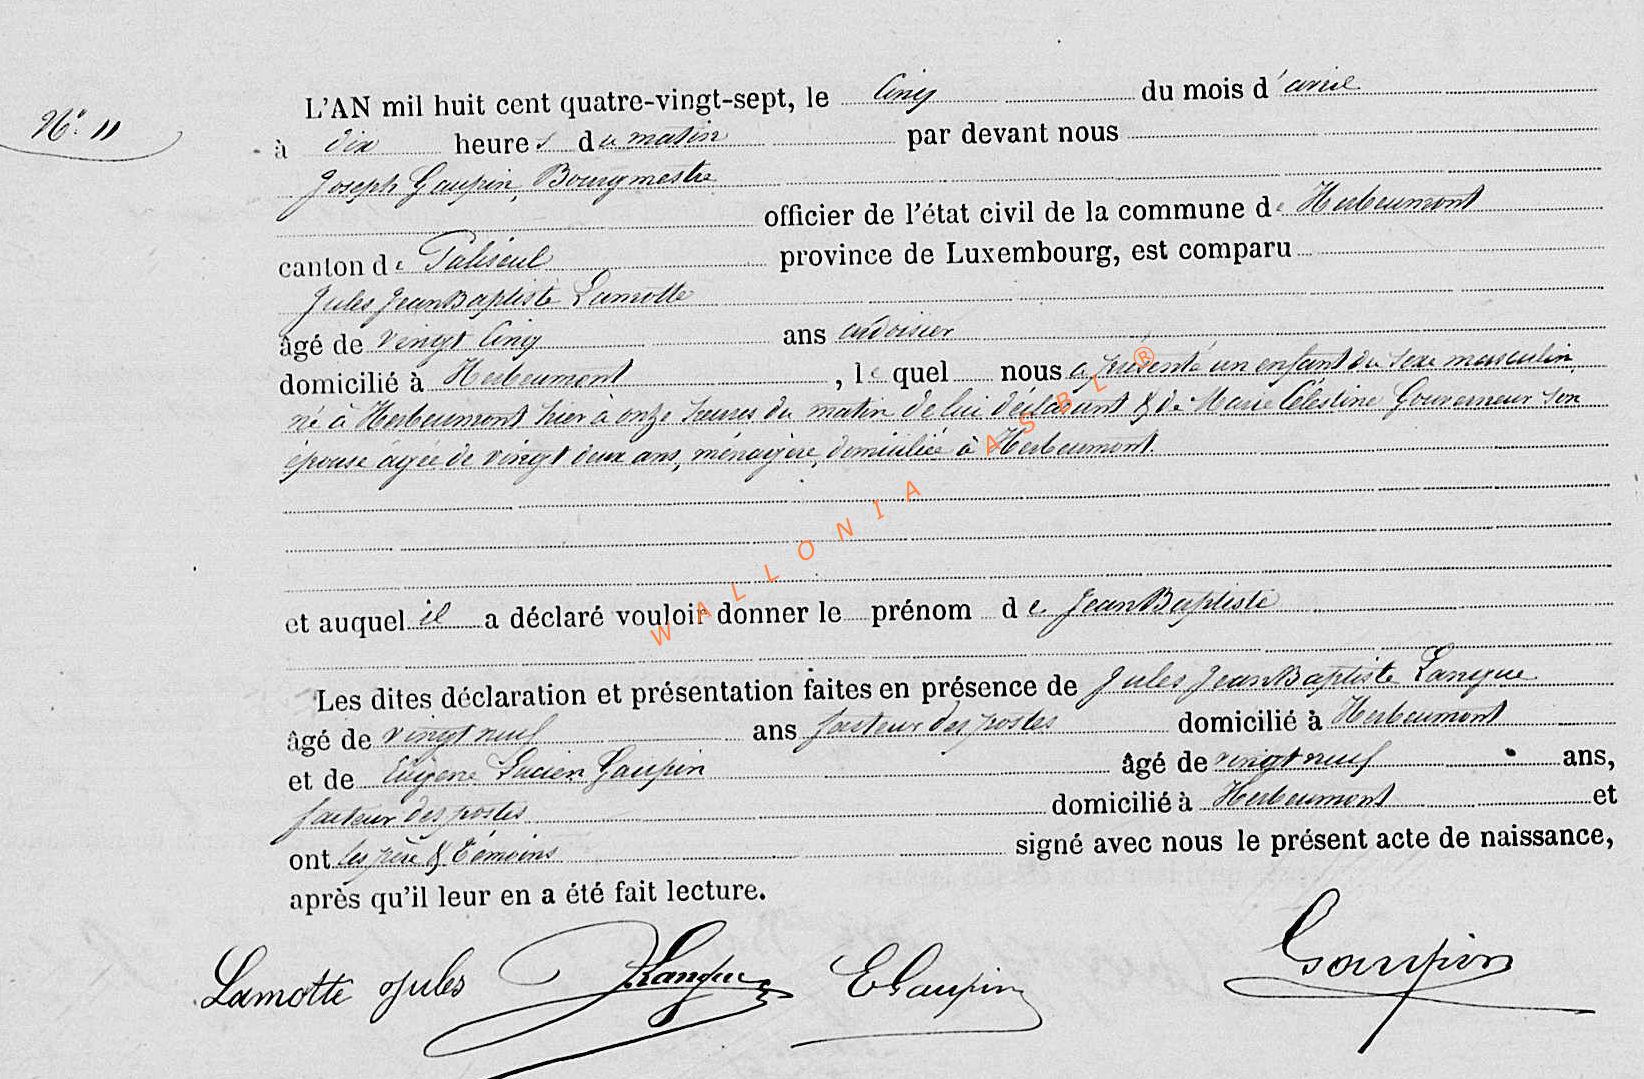 N° 11
L'AN mil huit cent quatre-vingt-sept, le Cinq du mois d'avril
à dix heures du matin par devant nous
Joseph Gaupin, Bourgmestre
officier de l'état civil de la commune de Herbeumont
canton de Paliseul province de Luxembourg, est comparu
Jules Jean Baptiste Lamotte
âgé de vingt Cinq ans ardoisier
domicilié à Herbeumont, lequel nous a présenté un enfant du sexe masculin,
né à Herbeumont hier à onze heures du matin de lui déclarant & de Marie Célestine Gouverneur son
épouse âgée de vingt deux ans, ménagère, domiciliée à Herbeumont.
WALLONIA ASBL®
et auquel il a déclaré vouloir donner le prénom de Jean Baptiste
Les dites déclaration et présentation faites en présence de Jules Jean Baptiste Langue
âgé de vingt neuf ans facteur des postes domicilié à Herbeumont
et de Eugène Lucien Gaupin âgé de vingt neuf ans,
facteur des postes domicilié à Herbeumont et
ont les père & Témoins signé avec nous le présent acte de naissance,
après qu'il leur en a été fait lecture.
Lamotte Jules JLangue EGaupin Gaupin